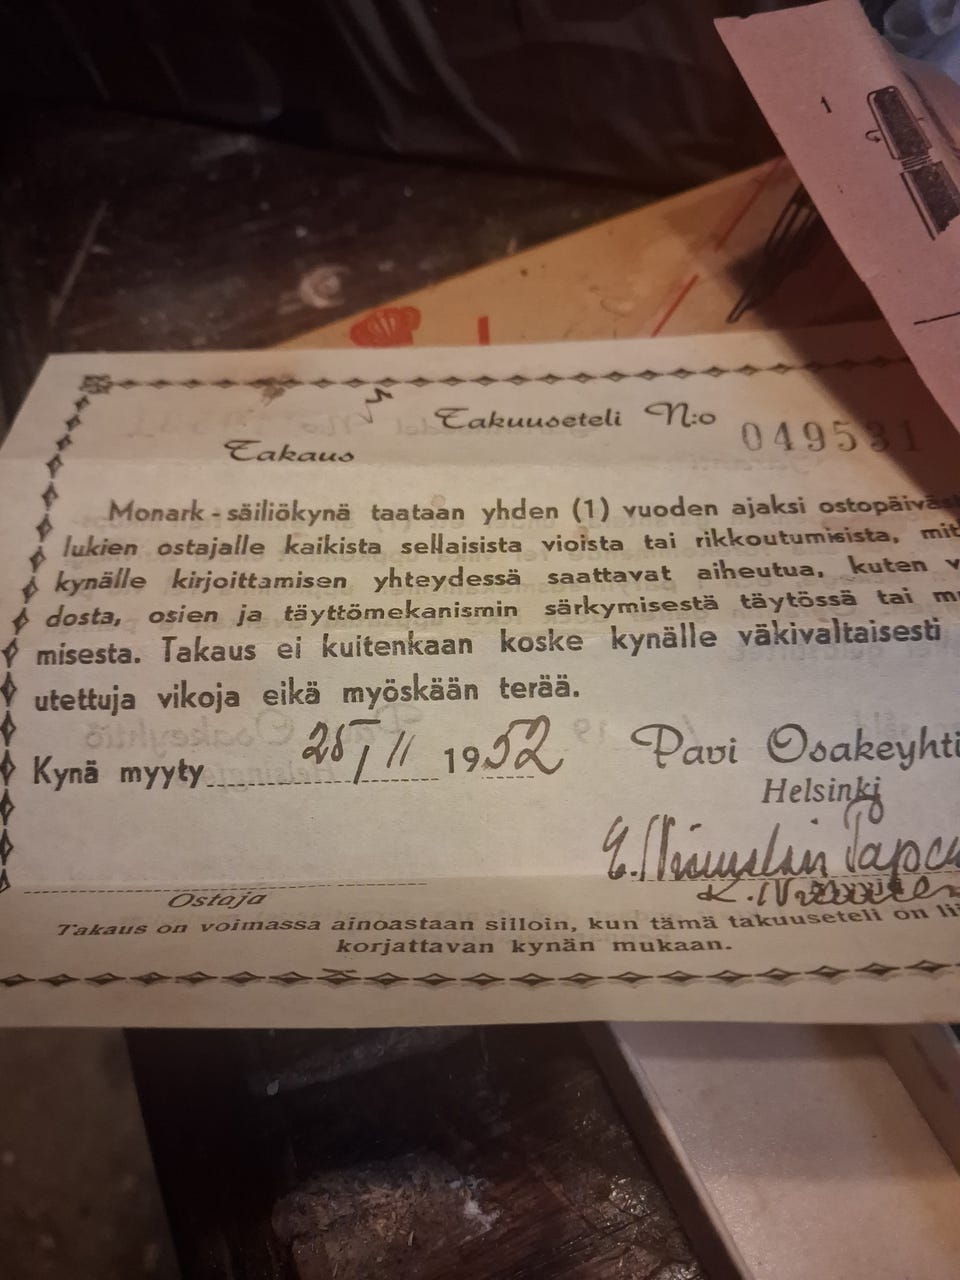 1
Takuuseteli N:o 049531
Takaus
Monark-säiliökynä taataan yhden (1) vuoden ajaksi
lukien ostajalle kaikista sellaisista vioista tai rikkoutumisista,
kynälle kirjoittamisen yhteydessä saattavat aiheutua, kuten
dosta, osien ja täyttömekanismin särkymisestä täytössä tai
misesta. Takaus ei kuitenkaan koske kynälle väkivaltaisesti
utettuja vikoja eikä myöskään terää.
Kynä myyty 1952 Pavi
Helsinki
Ostaja
Takaus on voimassa ainoastaan silloin, kun tämä takuuseteli on
korjattavan kynän mukaan.